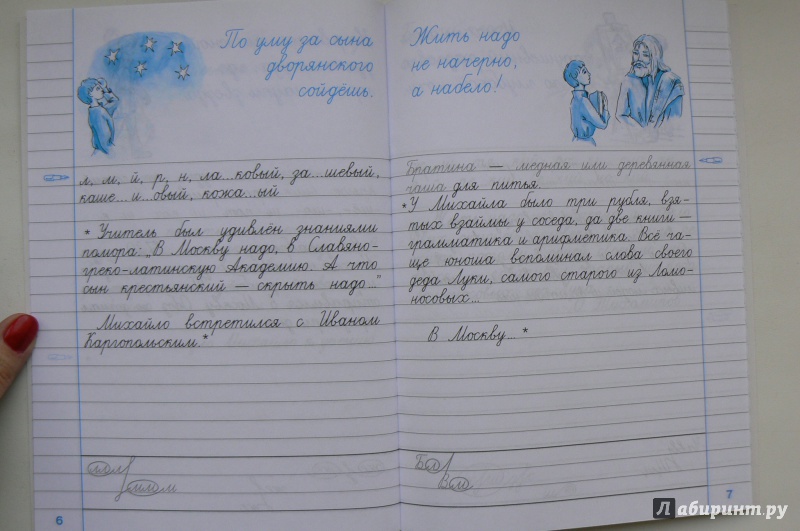 По уму за сына
дворянского
сойдёшь.
л, м, й, р, н, ла...ковый, за...шевый,
каше...и...овый, кожа...ый
* Учитель был удивлён знаниями
помора: „В Москву надо, в Славяно-
греко-латинскую Академию. А что
сын крестьянский — скрыть надо..."
Михайло встретился с Иваном
Каргопольским.*
6
Жить надо
не начерно,
а набело!
Братина — медная или деревянная
чаша для питья.
* У Михайла было три рубля, взя-
тых взаймы у соседа, да две книги —
грамматика и арифметика. Всё ча-
ще юноша вспоминал слова своего
деда Луки, самого старого из Ломо-
носовых...
В Москву... *
7
Лабиринт.ру